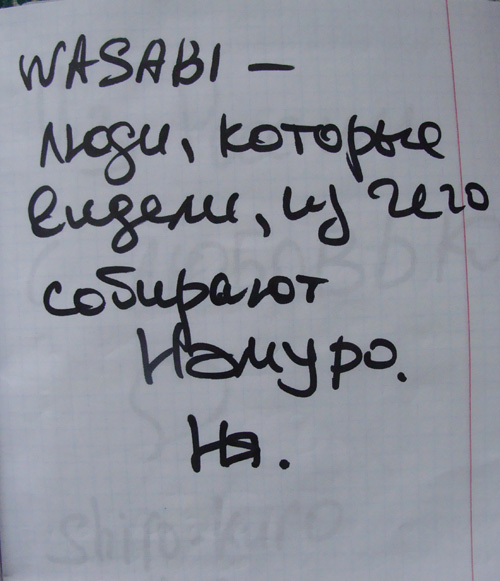 WASABI –
люди, которые
видели, из чего
собирают
Намуро.
Ня.
shiro-kuro